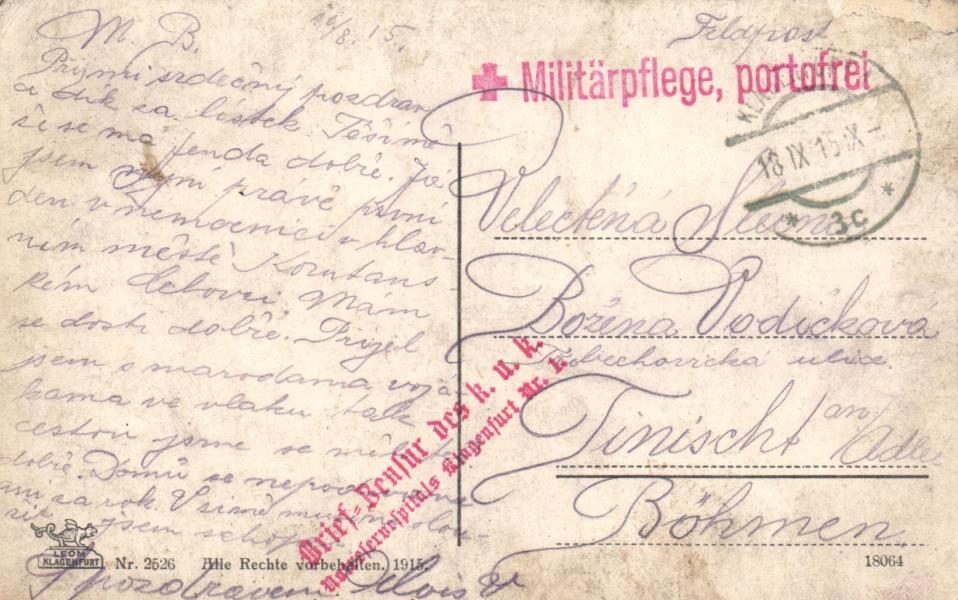 M. B. 8. 15.
Feldpost
Militärpflege, portofrei
KLA
18 IX 15 IX -
* 3c *
Přijmi srdečný pozdrav
a dík za lístek Těšímě
že se máš Jenda dobře. Já
jsem nyní právě první
den v nemocnici v hlav-
ním městě Korutans-
kém Celovci Mám
se dosti dobře. Přijel
jsem s marodama vojá
kama ve vlaku tak
cestou jsme se měli
dobře. Domů se
ani za rok V zimě
jsem schop
S pozdravem Alois V
Velectěná Slečna
Božena Vodičková
Třebechovická ulice
Tinischt an
Adler
Böhmen
Brief-Zensur des k. u. k.
Reservespitals Klagenfurt Nr. 1.
LEON
KLAGENFURT
Nr. 2526 Alle Rechte vorbehalten. 1915.
18064